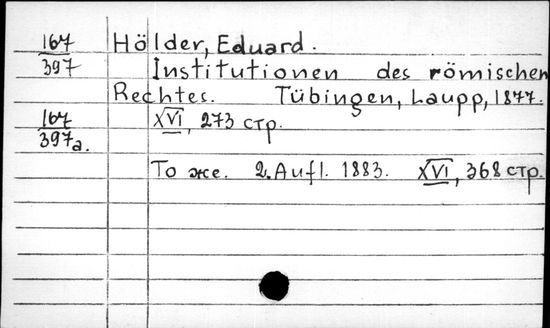 167 Hölder, Eduard.
397 Institutionen des römischen
Rechtes. Tübingen, Laupp, 1877.
167 XVI, 273 стр.
397a.
То же. 2. Aufl. 1883. XVI, 368 стр.